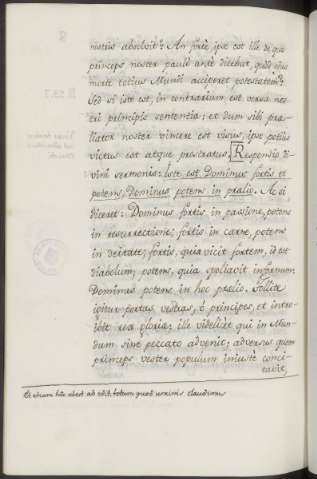 mortis absolvit? An forte ipse est ille de quo
princeps noster paulo ante dicebat, quod ejus
morte totius Mundi acciperet potestatem?
Sed si iste est, in contrarium est versa nos
tri principis sententia: et dum sibi præ
liator noster vincere est visus, ipse potius
victus est atque prostratus. Responsio Di
vini sermonis: Iste est Dominus fortis et
potens, Dominus potens in prælio. Ac si
diceret: Dominus fortis in passione, potens
in resurrectione; fortis in carne, potens
in deitate; fortis, quia vicit fortem, id est
diabolum; potens, quia spoliavit infernum.
Dominus potens in hoc prælio. Tollite
igitur portas vestras, ò principes, et intro-
ibit rex gloriæ; ille videlicet qui in Mun-
dum sine peccato advenit; adversus quem
princeps vester populum iniuste conci-
tavit,
abest ab edit. totum quod uncinis claudimus